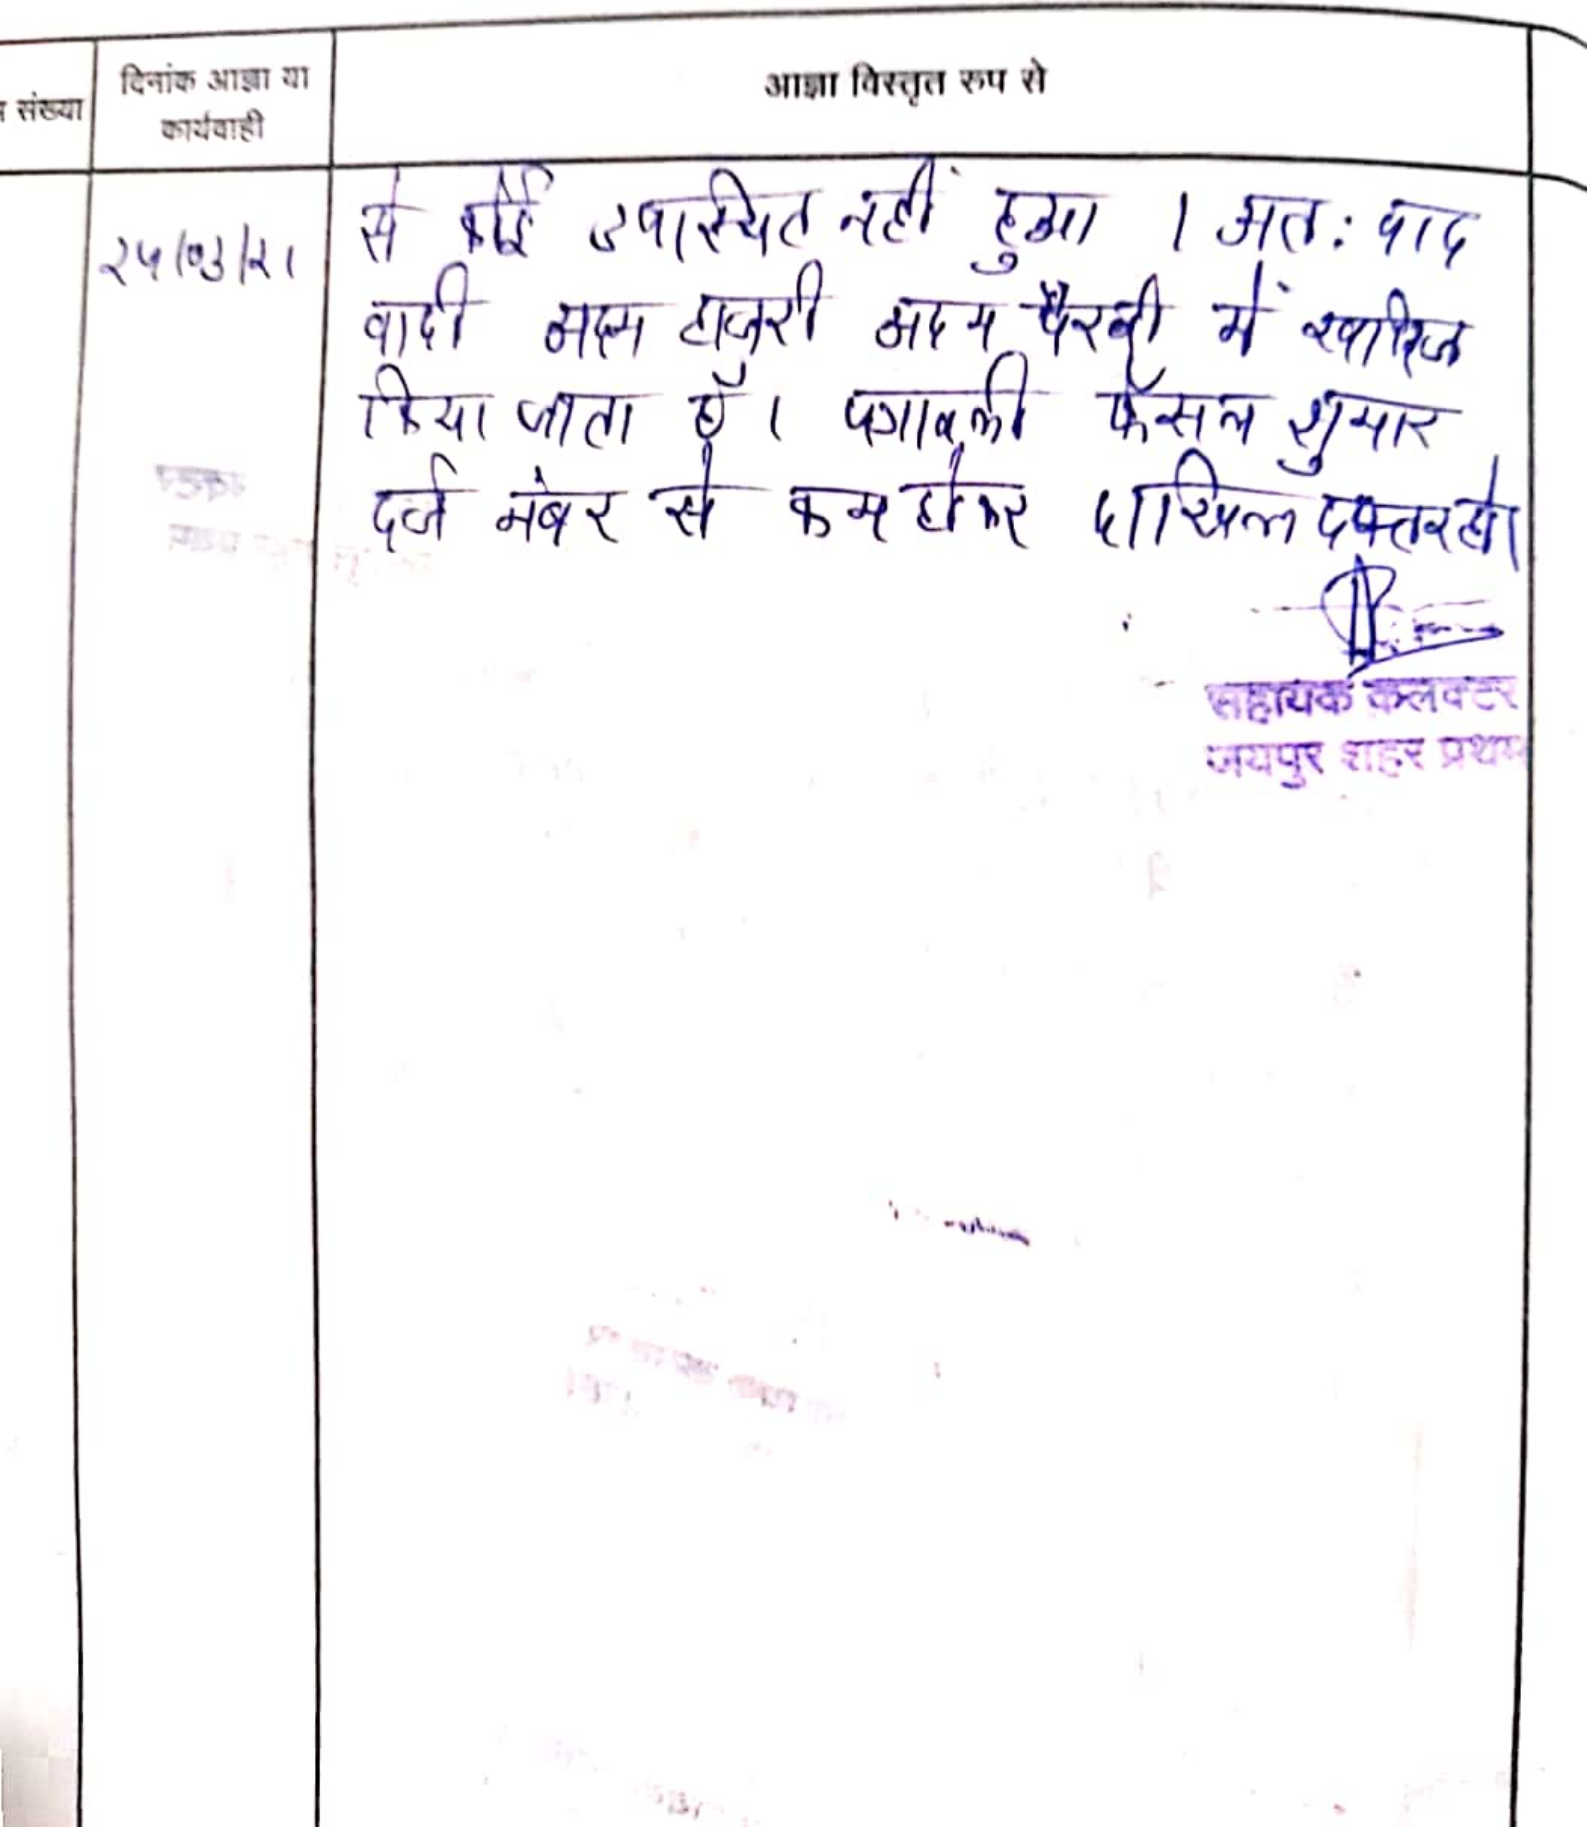 संख्या
दिनांक आज्ञा या
कार्यवाही
आज्ञा विस्तृत रुप से
से कोई उपस्थित नहीं हुआ । अतः वाद
वादी अदम हाजरी अदम पैरवी में खारिज
किया जाता है। पत्रावली फैसल शुमार
दर्ज नंबर से कम होकर दाखिल दफ्तर हो।
सहायक कलक्टर
जयपुर शहर प्रथम